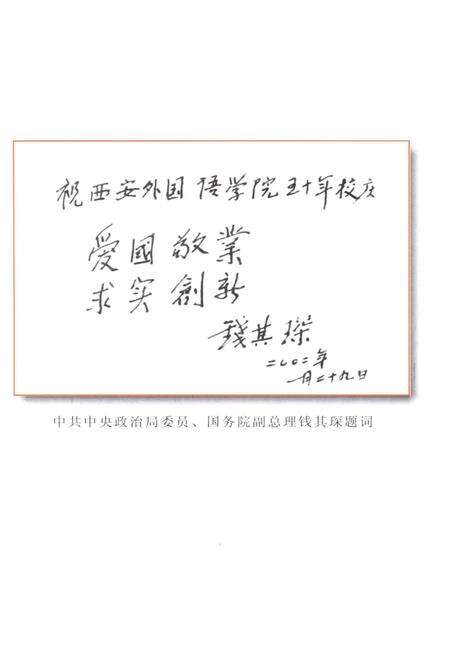 祝西安外国语学院五十年校庆
爱國敬業
求实創新
錢其琛
二〇〇二年
一月二十九日
中共中央政治局委员、国务院副总理钱其琛题词